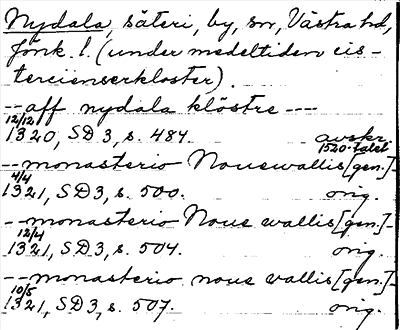 Nydala, säteri, by, sn, Västra hd,
Jönk. l. (under medeltiden cis-
tercienserkloster).
-- aff nydala klöstre ----
12/12
1320, SD 3, s. 484. avskr.
1520-talet
-- monasterio Nouewallis [gen.] -
4/4
1321, SD 3, s. 500. orig.
-- monasterio Noue wallis [gen.] -
12/4
1321, SD 3, s. 504. orig.
-- monasterio noue vallis [gen.] -
10/5
1321, SD 3, s. 507. orig.